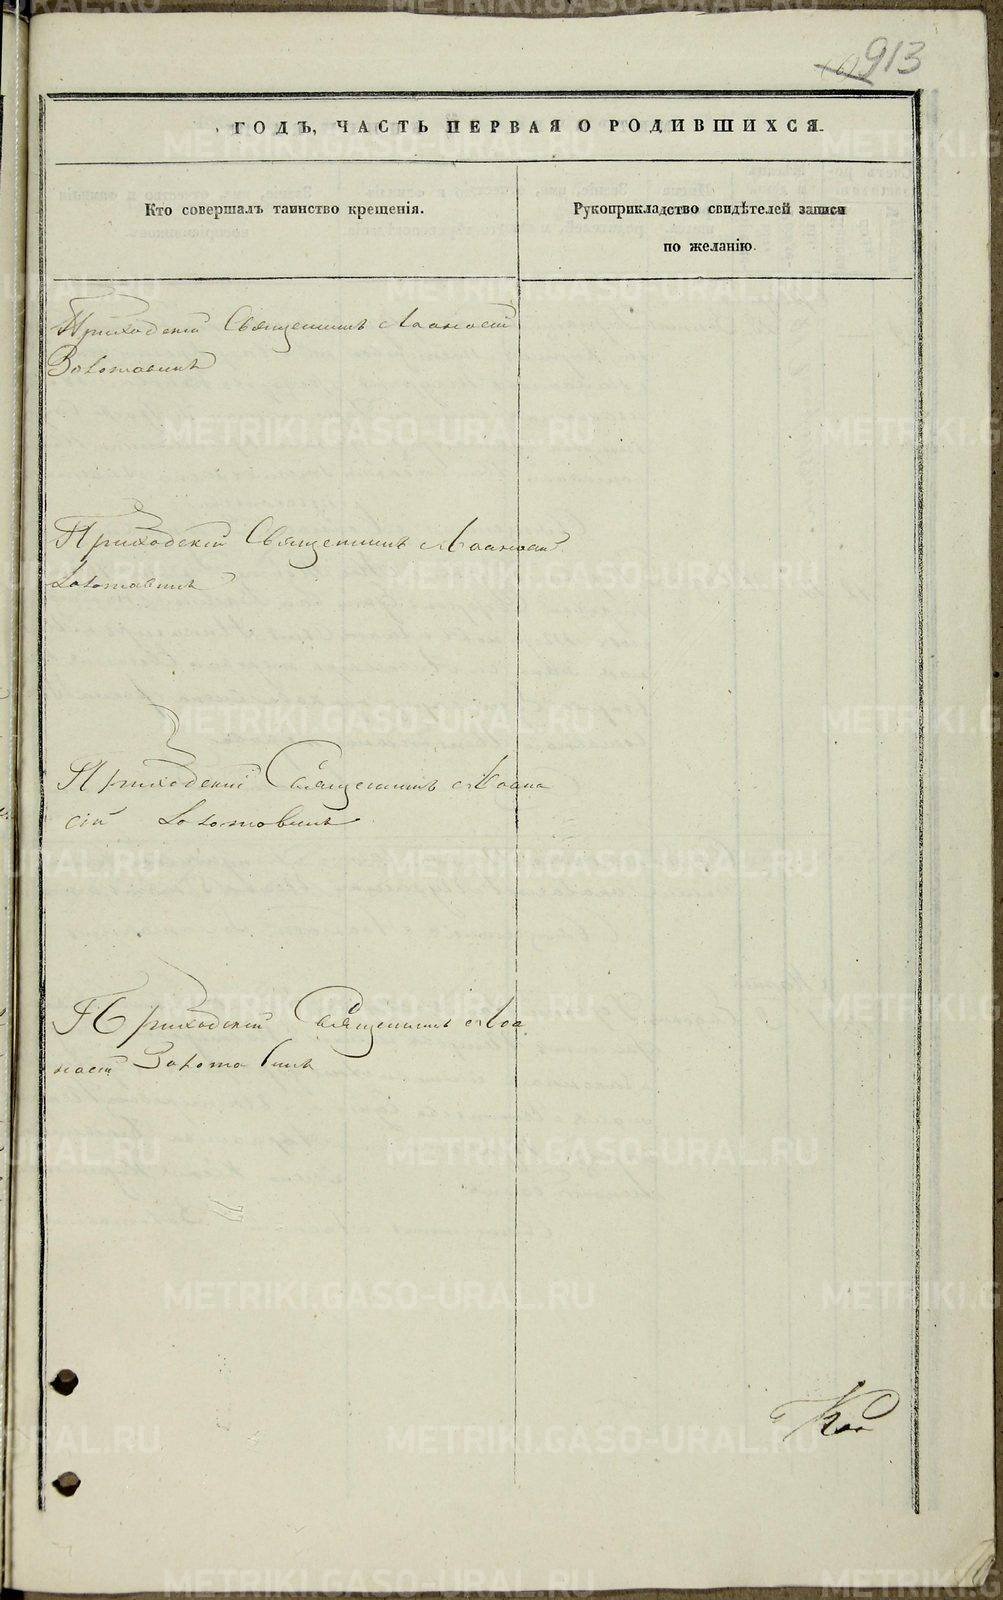 913
ГОДЪ, ЧАСТЬ ПЕРВАЯ О РОДИВШИХСЯ.
Кто совершалъ таинство крещенія.
Рукоприкладство свидѣтелей записи
по желанію.
Приходскій Священникъ Аѳанасій
Золотавинъ
Приходскій Священникъ Аѳанасій
Золотавинъ
Приходскій Священникъ Аѳана
сій Золотовинъ
Приходскій Священникъ Аѳа
насій Золотавинъ
METRIKI.GASO-URAL.RU